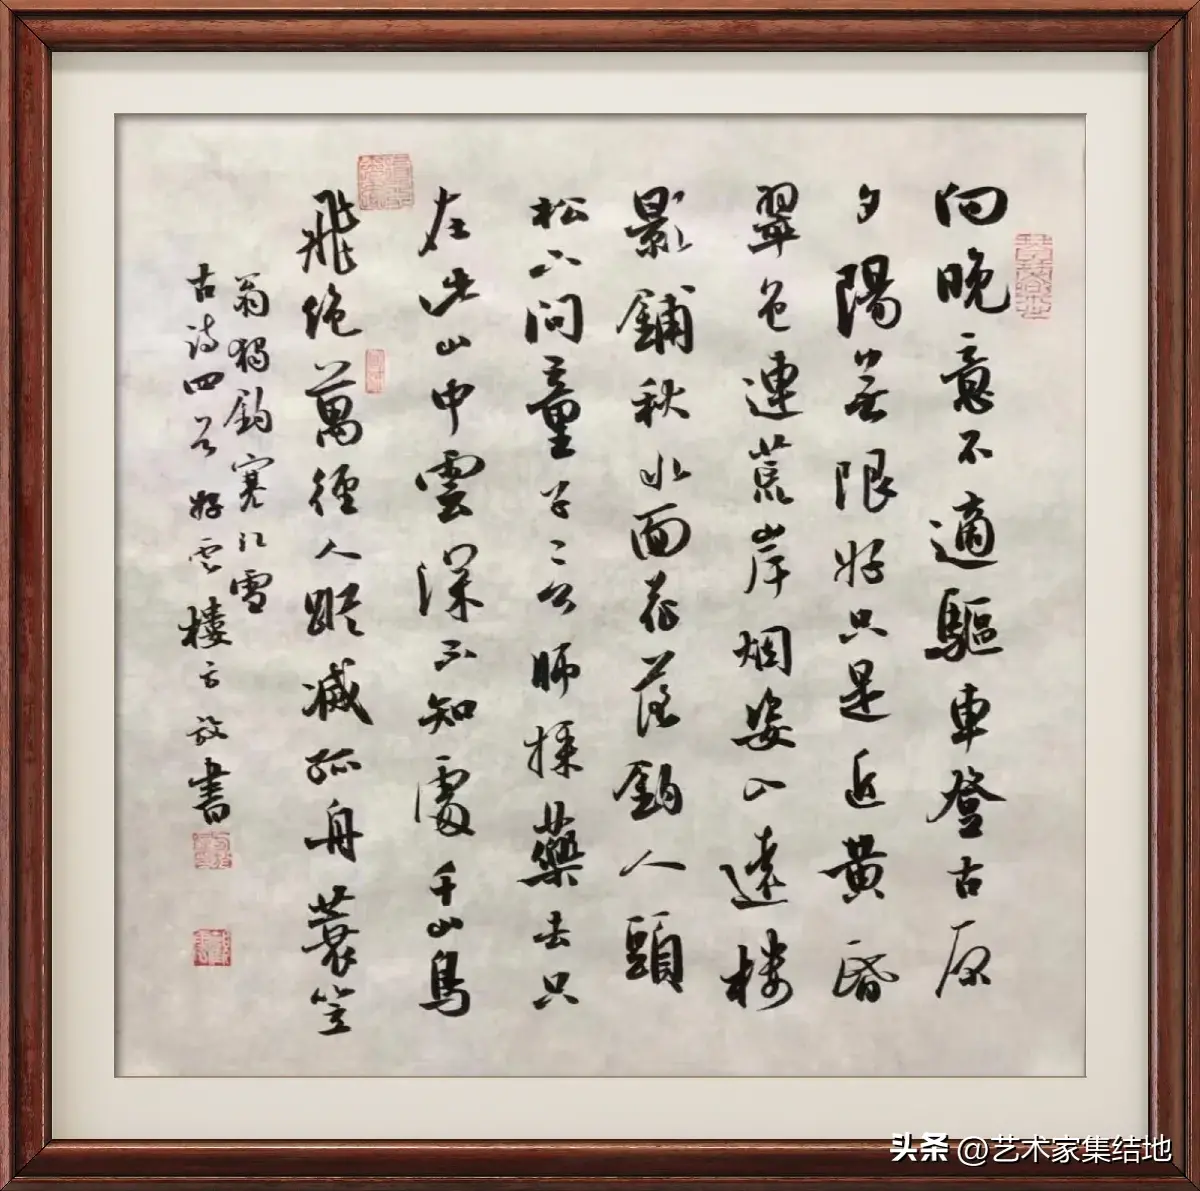 向晚意不適驅車登古原
夕陽無限好只是近黄昏
翠色連荒岸烟姿入遠楼
影鋪秋水面花落釣人頭
松下問童子言師採藥去只
在此山中雲深不知處千山鳥
飛绝萬徑人蹤滅孤舟蓑笠
翁獨釣寒江雪
古诗四首好云樓書
头条 @艺术家集结地